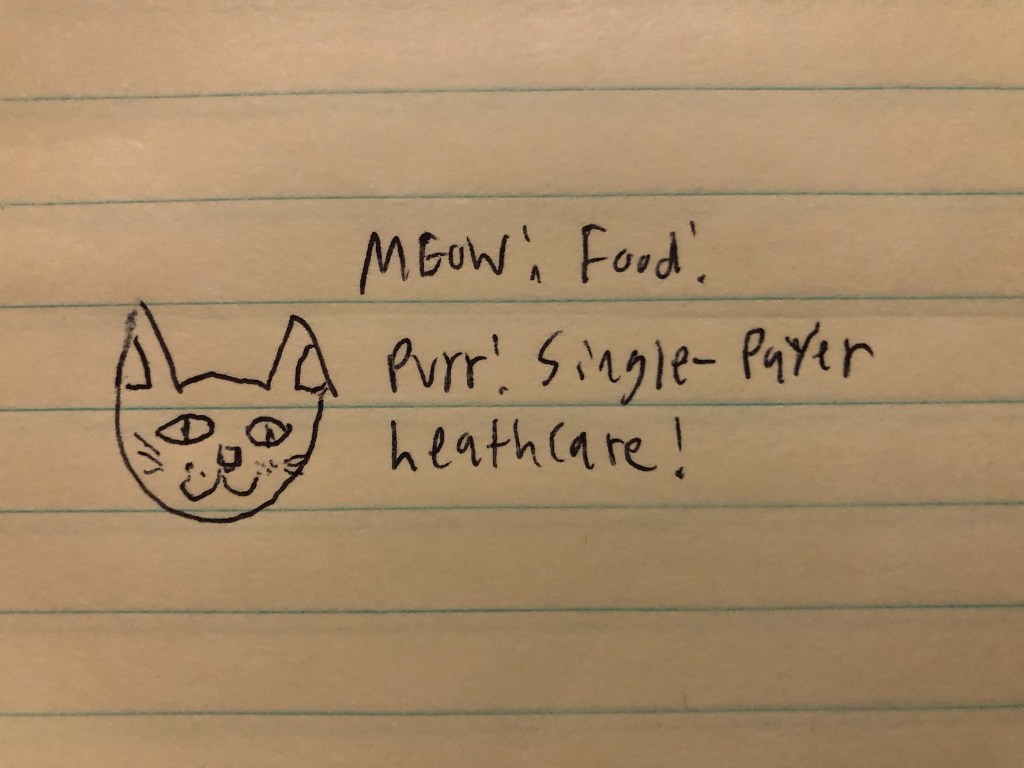 MEOW! Food!
Purr! Single-Payer
heathcare!